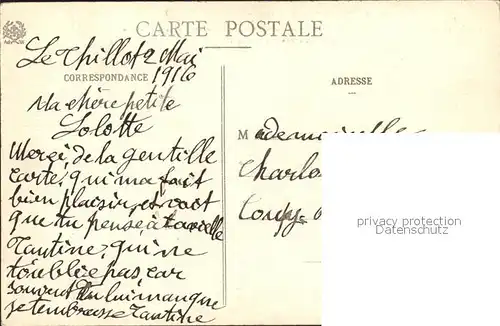 CARTE POSTALE
Le Thillot 2 Mai
1916
CORRESPONDANCE
ADRESSE
Ma chère petite
Lolotte
Merci, de la gentille
carte, qui m'a fait
bien plaisir, et voit
que tu pense à ta vieille
Tantine, qui ne
t'oublie pas, car
souvent tu lui manque
je t'embrasse Tantine
Mademoiselle
Charlo
privacy protection
Datenschutz